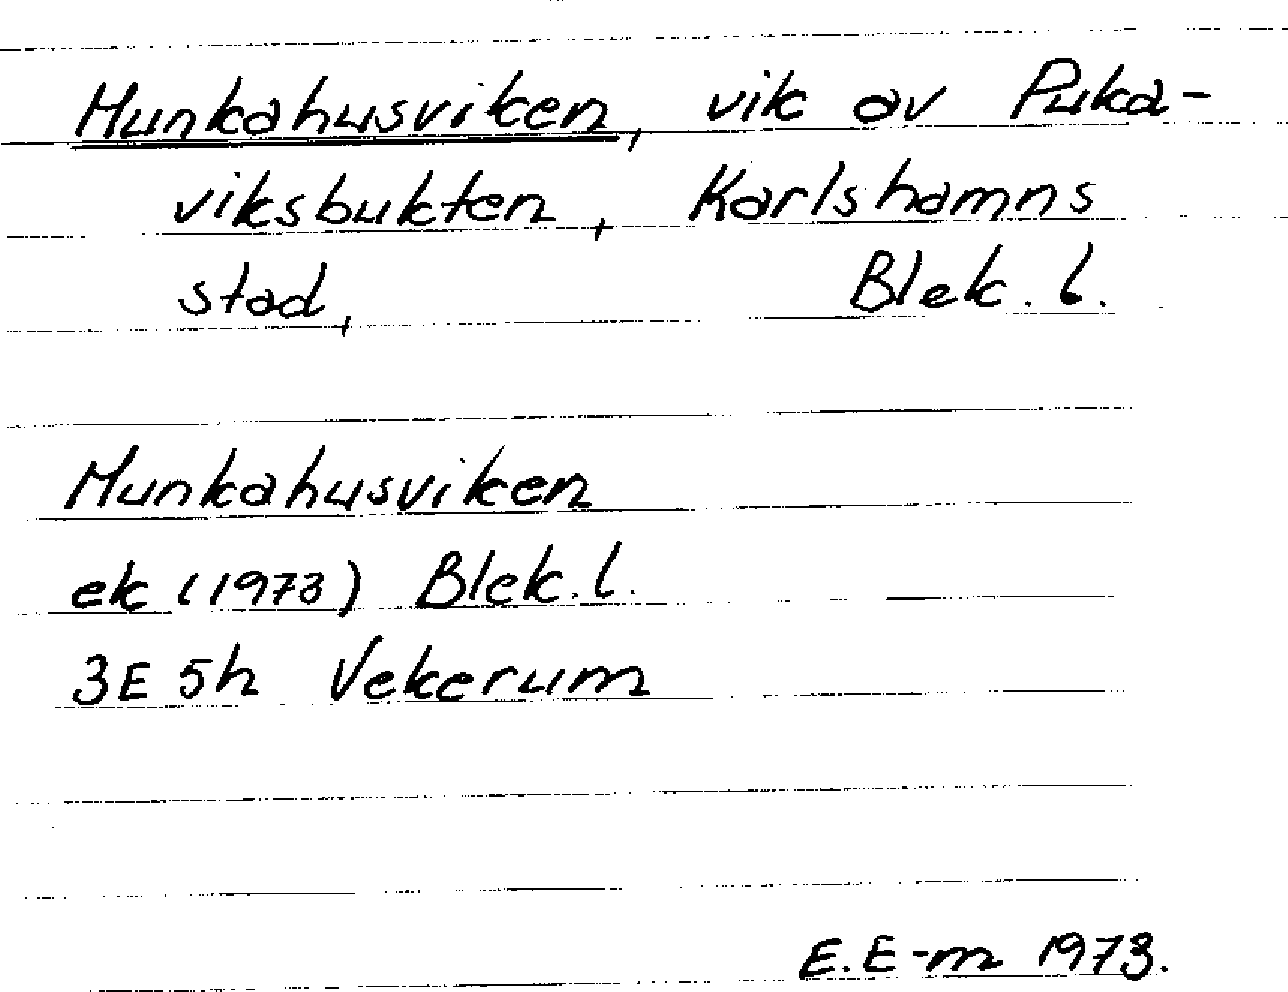 Munkahusviken, vik av Puka-
viksbukten, Karlshamns
stad, Blek. l.
Munkahusviken
ek (1973) Blek. l.
3E 5h Vekerum
E. E-m 1973.